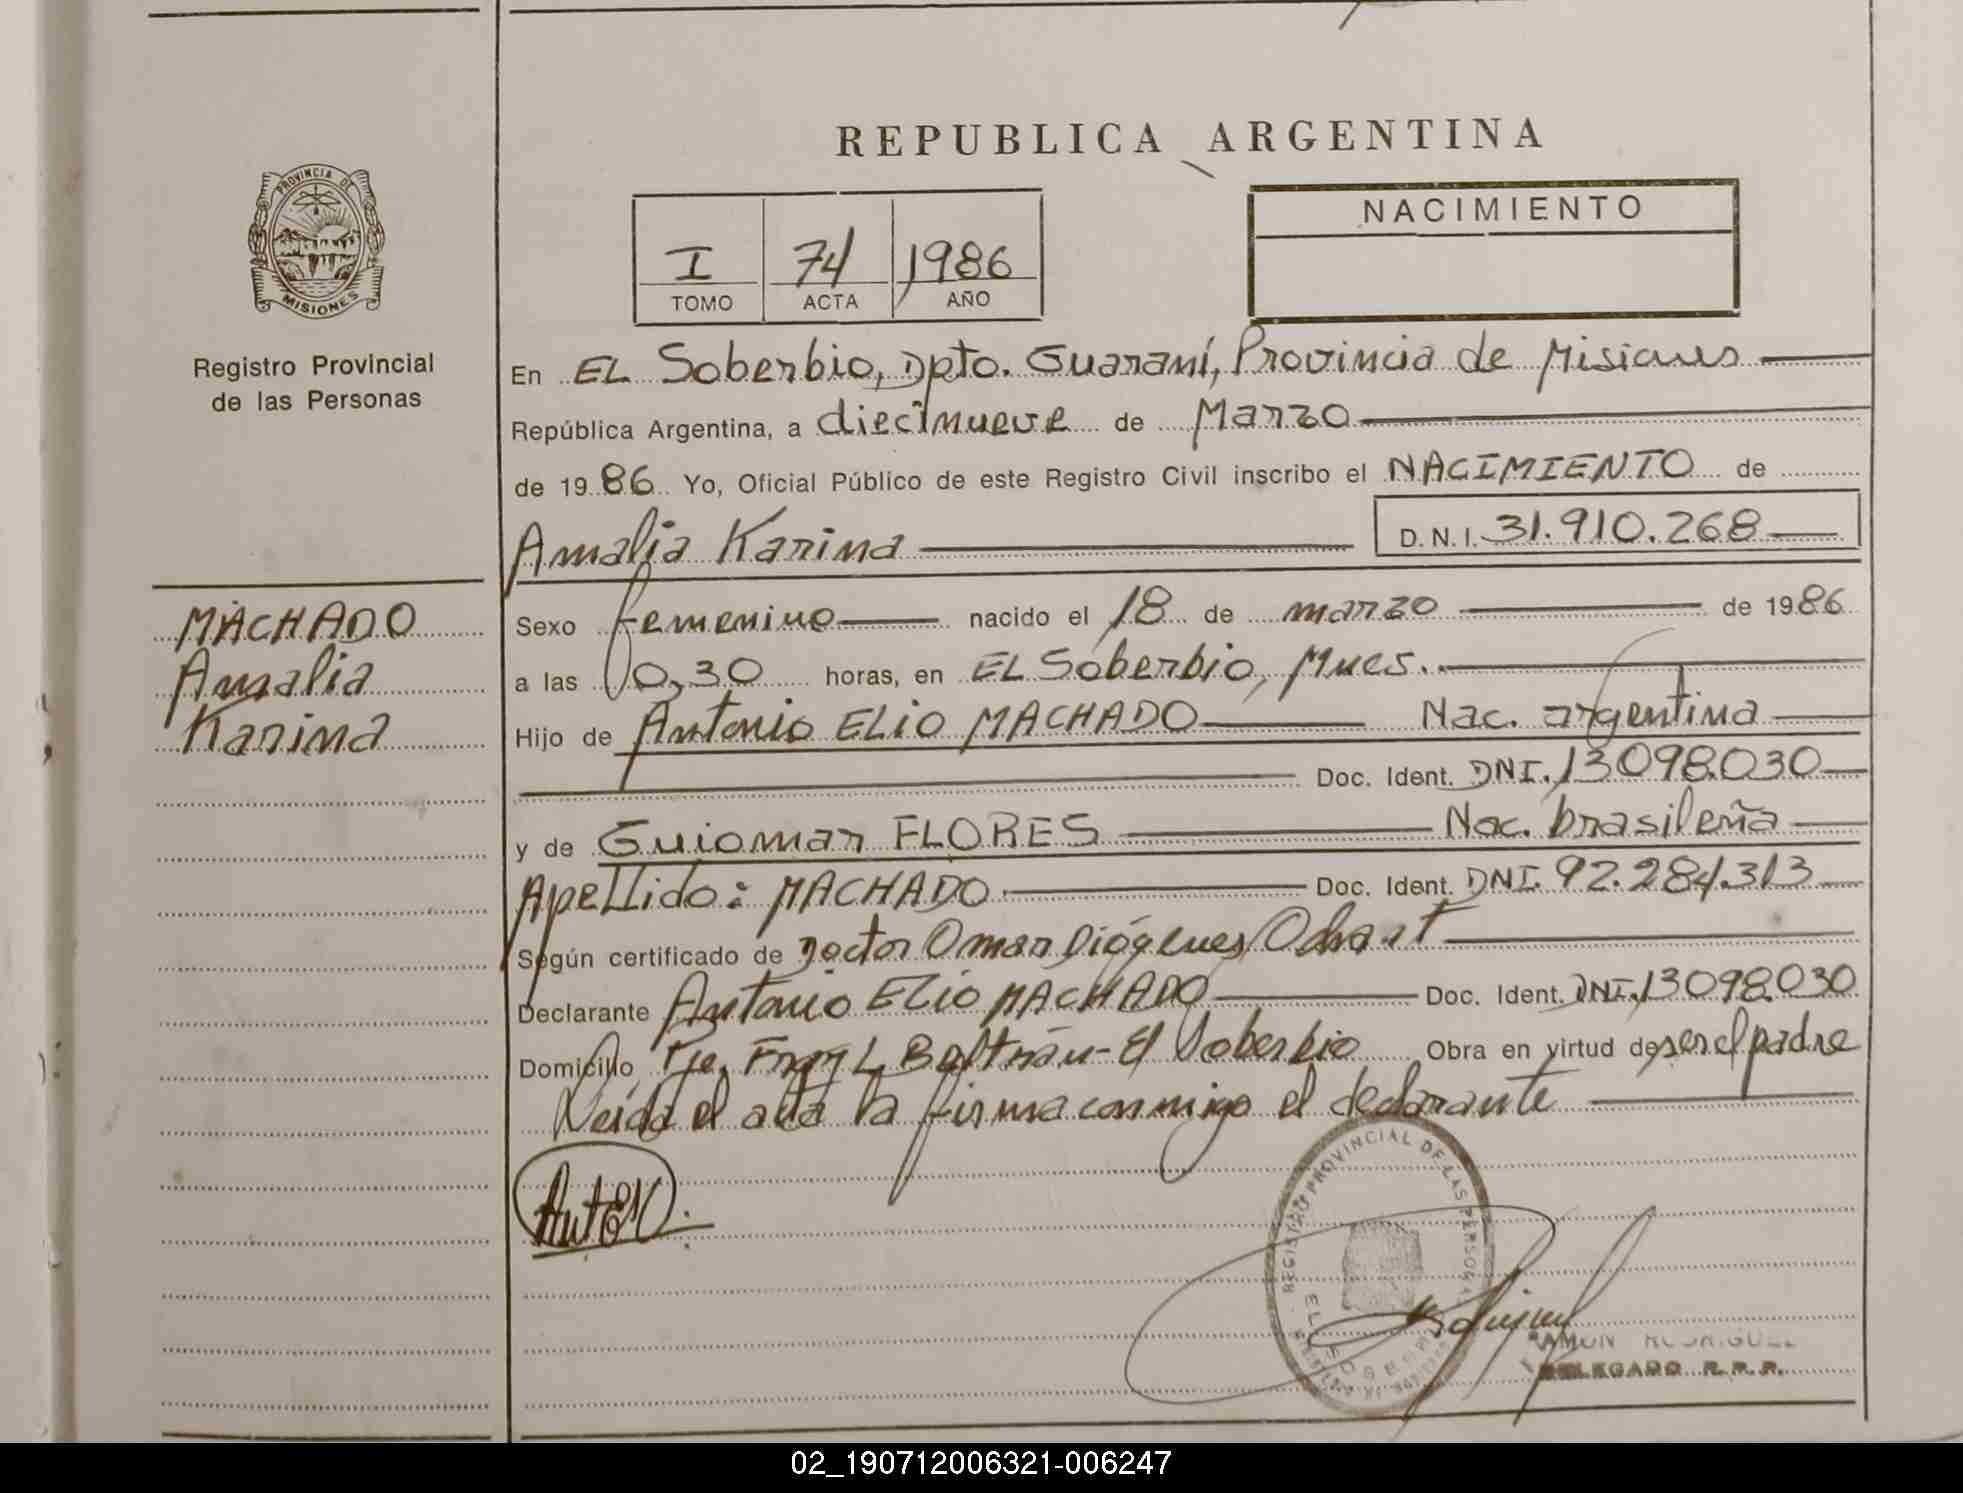 REPUBLICA ARGENTINA
PROVINCIA DE
MISIONES
Registro Provincial
de las Personas
I 74 1986
TOMO ACTA AÑO
NACIMIENTO
En EL Soberbio, Dpto. Guaraní, Provincia de Misiones
República Argentina, a diecinueve de Marzo
de 1986 Yo, Oficial Público de este Registro Civil inscribo el NACIMIENTO de
Amalia Karina D.N.I. 31.910.268
MACHADO
Amalia
Karina
Sexo femenino nacido el 18 de marzo de 1986
a las 0,30 horas, en EL Soberbio, Mnes.
Hijo de Antonio ELIO MACHADO Nac. argentina
Doc. Ident. DNI. 13098.030
y de Guiomar FLORES Nac. brasileña
Apellido: MACHADO Doc. Ident. DNI. 92.284.313
Según certificado de Doctor Omar Diógenes
Declarante Antonio ELIO MACHADO Doc. Ident. DNI. 13098.030
Domicilio Pje. Fray L Beltrán - El Soberbio Obra en virtud de ser el padre
Leída el acta la firma conmigo el declarante
REGISTRO PROVINCIAL DE LAS PERSONAS
EL SOBERBIO
RAMON RODRIGUEZ
DELEGADO R.P.P.
02_190712006321-006247